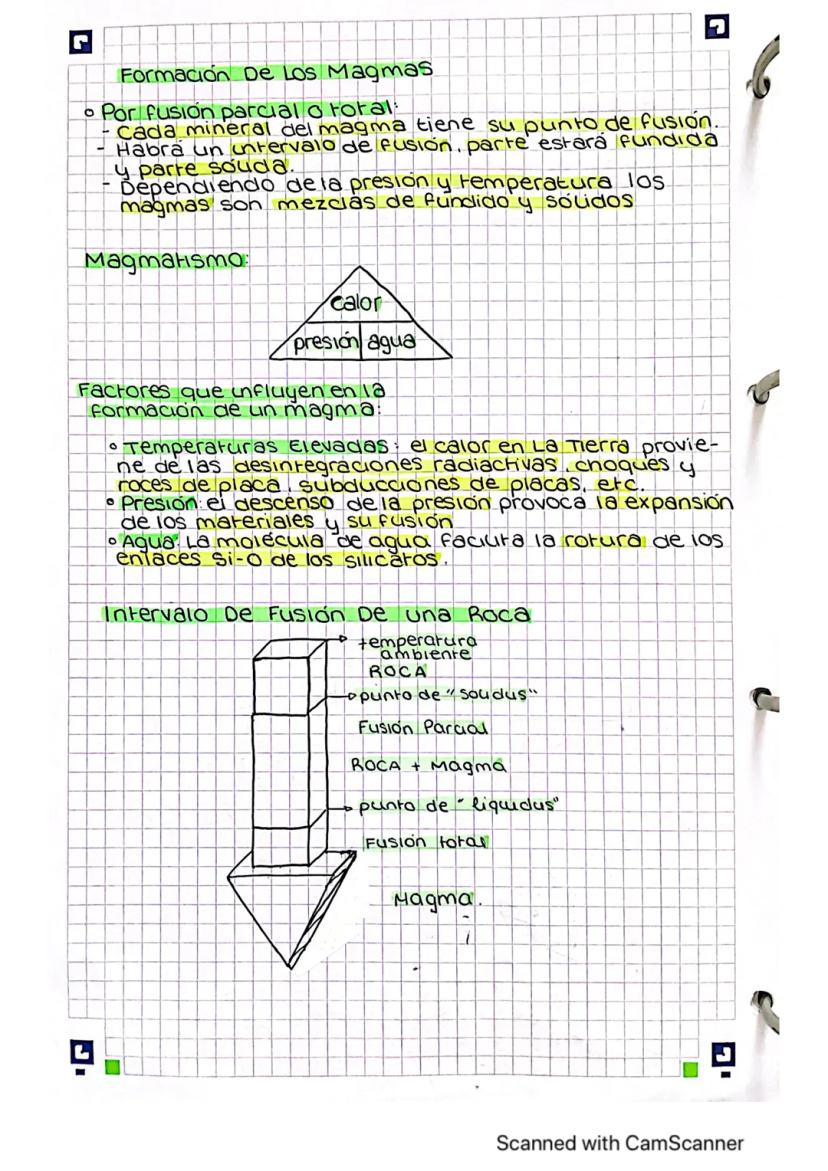 Formación De Los Magmas
° Por fusión parcial o total:
- Cada mineral del magma tiene su punto de fusión.
- Habrá un intervalo de fusión, parte estará fundida
y parte sólida.
- Dependiendo de la presión y temperatura los
magmas son mezclas de fundido y sólidos
Magmatismo:
calor
presión agua
Factores que influyen en la
formación de un magma:
° Temperaturas Elevadas: el calor en La Tierra provie-
ne de las desintegraciones radiactivas, choques y
roces de placa, subducciones de placas, etc.
° Presión: el descenso de la presión provoca la expansión
de los materiales y su fusión
° Agua: La molécula de agua facilita la rotura de los
enlaces Si-O de los silicatos.
Intervalo De Fusión De una Roca
temperatura
ambiente
ROCA
punto de "solidus"
Fusión Parcial
ROCA + Magma
punto de "liquidus"
Fusión total
Magma.
Scanned with CamScanner